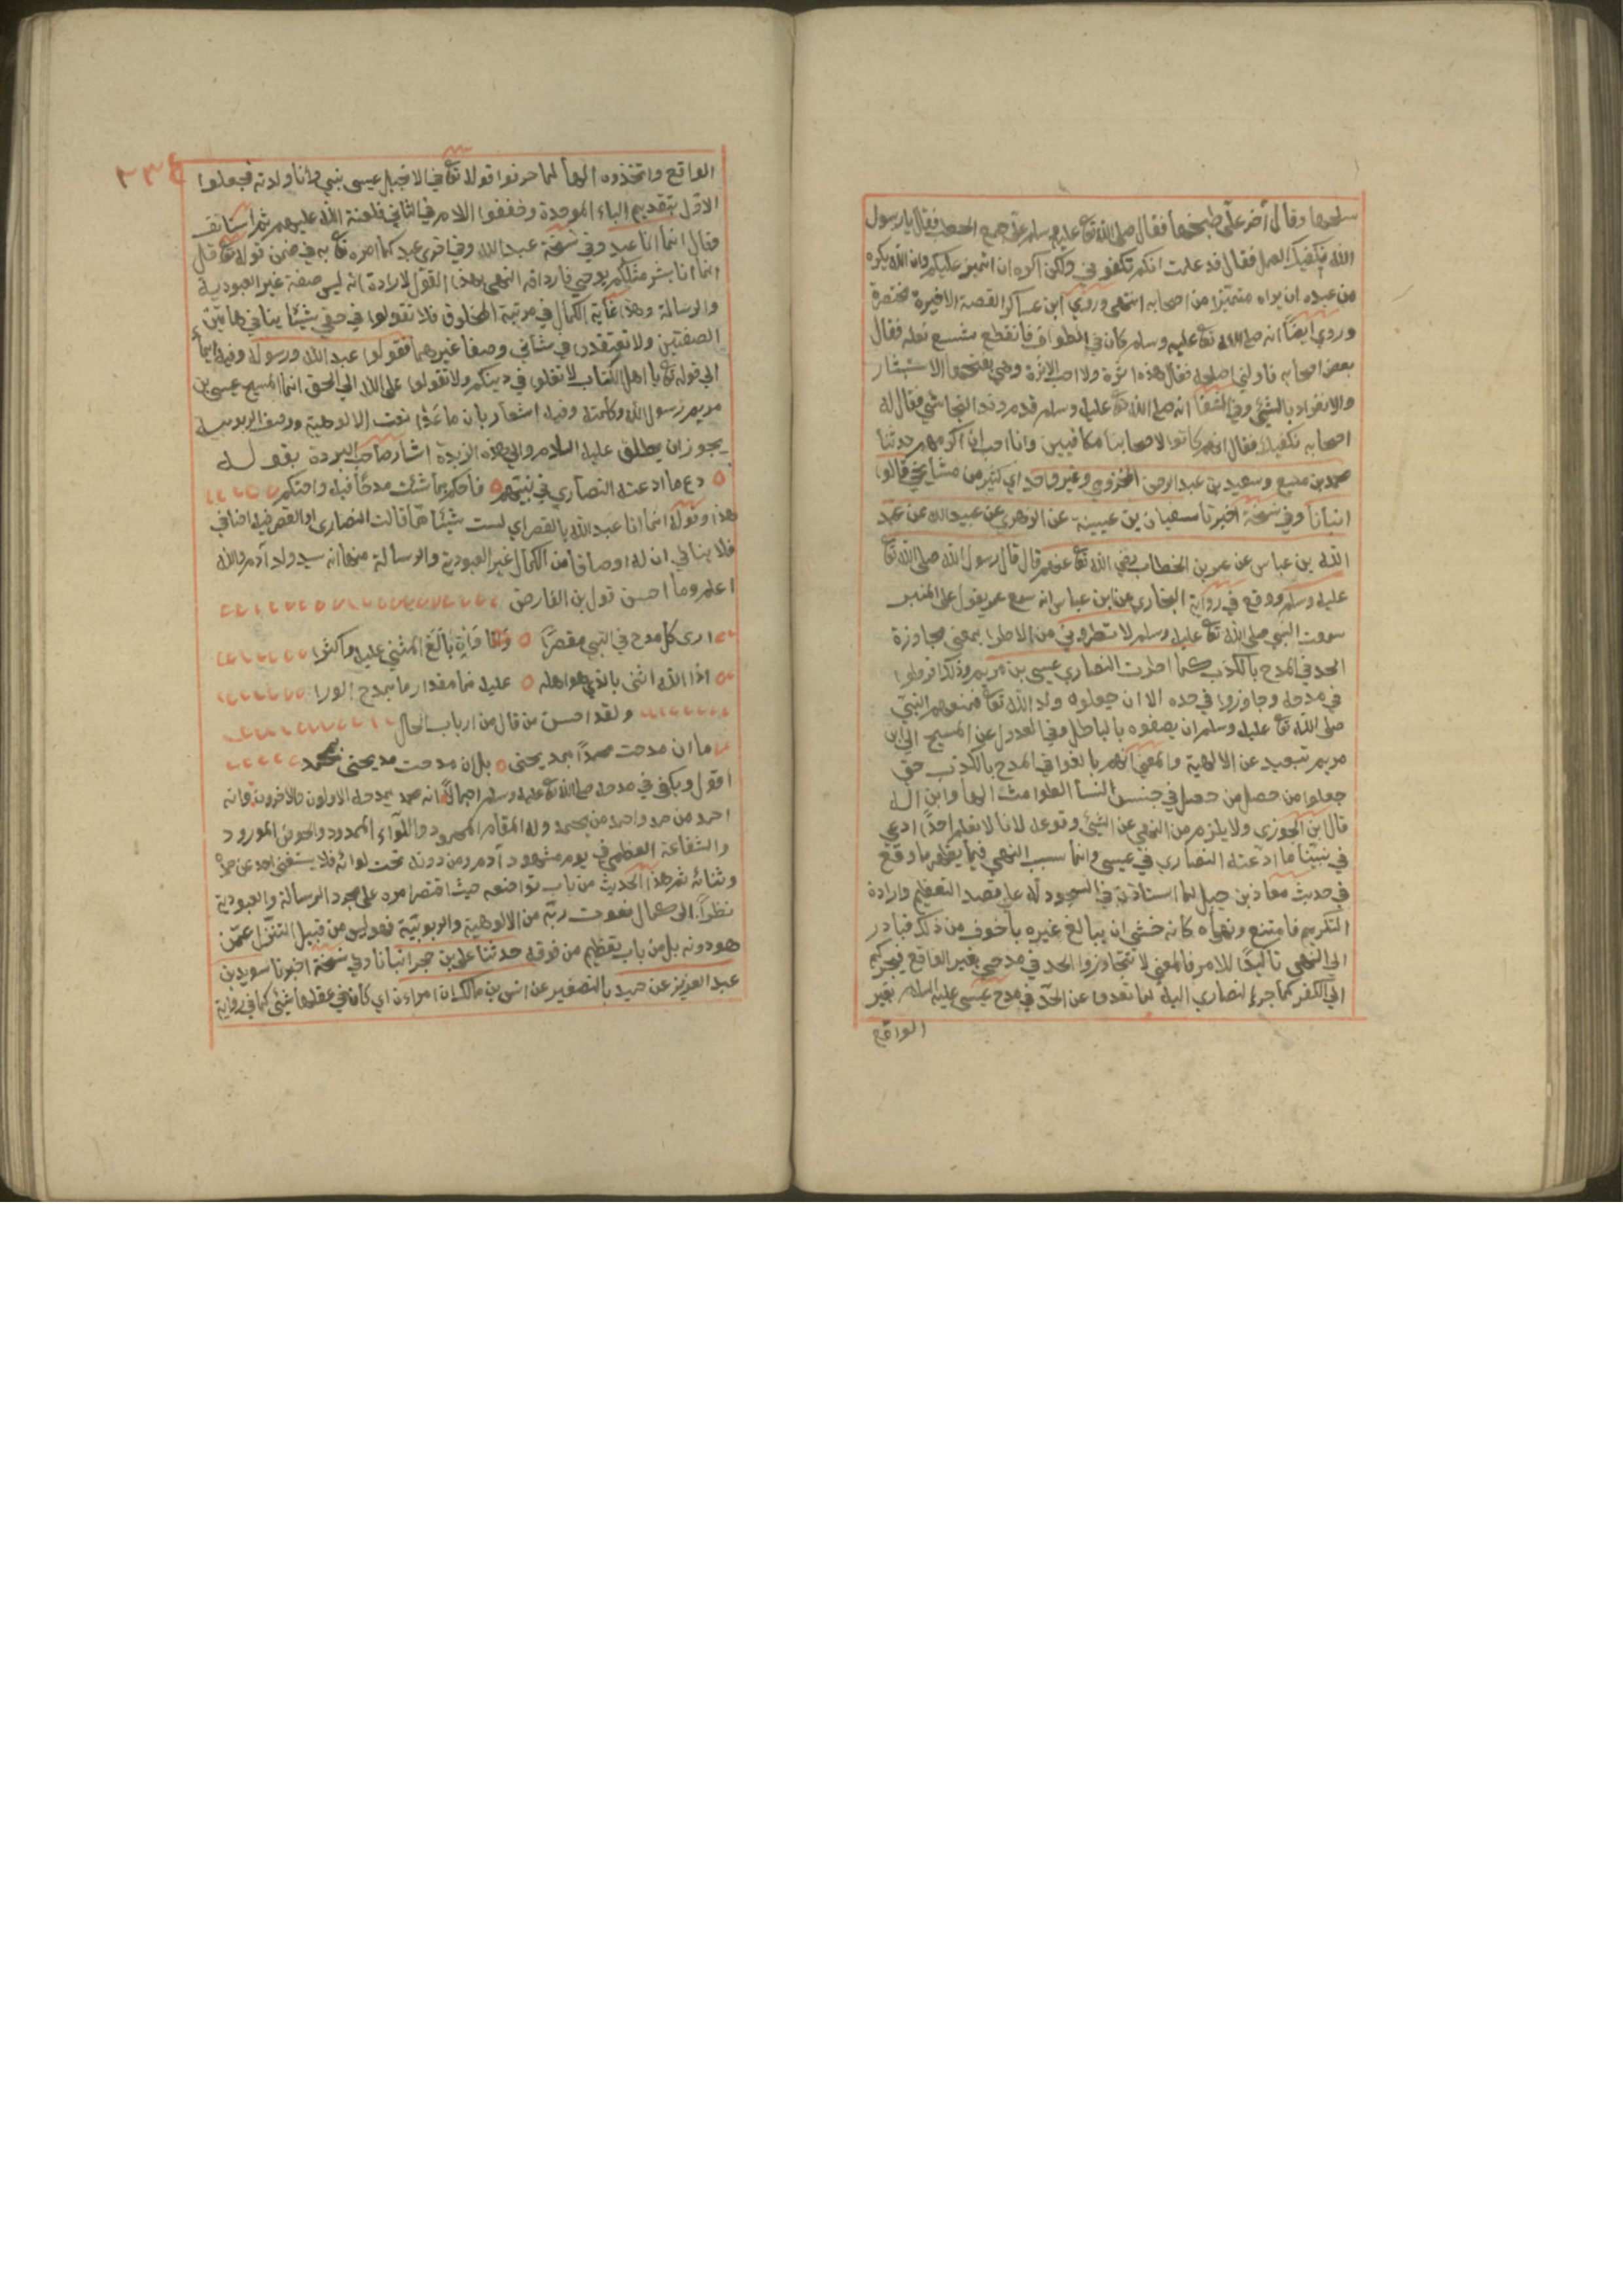 سلخها وقال آخر علّي طبخها فقال صلى الله تع عليه وسلم علّي جمع الحطب فقال يا رسول
الله نكفيك العمل فقال قد علمت انكم تكفوني ولكن اكره ان اتميز عليكم وان الله يكره
من عبده ان يراه متميّزا من اصحابه انتهى وروي ابن عساكر القصة الاخيرة مختصرة
وروي ايضا انه صلى الله تع عليه وسلم كان في الطواف فانقطع شسع نعله فقال
بعض اصحابه ناولني اصلحه فقال هذه اثرة ولا احب الاثرة وهي بفتحها الاستيثار
والانفراد بالشيء وفي الشفا انه صلى الله تع عليه وسلم قدم وفد النجاشي فقال له
اصحابه نكفيك فقال انهم كانوا لاصحابنا مكافيين وانا احب ان اكرمهم حدثنا
بن منيع وسعيد بن عبد الرحمن المخزومي وغير واحد اي كثير من مشايخي قالوا
انبانا وفي نسخة اخبرنا سفيان بن عيينة عن الزهري عن عبيد الله عن عبد
الله بن عباس عن عمر بن الخطاب رضي الله تع عنهم قال قال رسول الله صلى الله تع
عليه وسلم ووقع في رواية البخاري عن ابن عباس انه سمع عمر يقول على المنبر
سمعت النبي صلى الله تع عليه وسلم لا تطروني من الاطرا بمعنى مجاوزة
الحد في المدح بالكذب كما اطرت النصاري عيسى بن مريم وذلك افرطوا
في مدحه وجاوزوا في حده الا ان جعلوه ولد الله تع فمنعهم النبي
صلى الله تع عليه وسلم ان يصفوه بالباطل وفي العدول عن المسيح الي ابن
مريم تبعيد عن الالهية والمعنى انهم بالغوا في المدح بالكذب حتى
جعلوا من حصل من جنس النسا الطوامث الها وابن اله
قال ابن الجوزي ولا يلزم من النهي عن الشيئ وقوعه لانا لا نعلم احدًا ادعي
في نبيّنا ما ادّعته النصاري في عيسى وانما سبب النهي فيما يظهر ما وقع
في حديث معاذ بن جبل لما استاذن في السجود له على قصد التعظيم وارادة
التكريم فامتنع ونهاه كانه خشي ان يبالغ غيره بأخوف من ذلك فبادر
الى النهي تاكيدًا للامر فالمعني لا تتجاوزوا الحد في مدحي بغير الواقع فيجركم
الي الكفر كما جر النصاري اليه لما تعدوا عن الحدّ في مدح عيسى عليه السلام بغير
الواقع
٢٣٤
الواقع واتخذوه الهاً لما حرفوا قوله تع في الانجيل عيسى نبيي وانا ولدته فجعلوا
الاوّل بتقديم الباء الموحدة وخففوا اللام في الثاني فلعنة الله عليهم ثم استانف
فقال انما انا عبد وفي نسخة عبد الله وفي اخرى عبد كما امره تع به في ضمن قوله تع قل
انما انا بشر مثلكم يوحي النهي بهذا القول لارادة انه ليس صفة غير العبودية
والرسالة وهذا غاية الكمال في مرتبة المخلوق فلا تقولوا في حقي شيئا ينافي هاتين
الصفتين ولا تعتقدوا في شاني وصفا غيرهما فقولوا عبد الله ورسوله وفيه ايماء
الي قوله تع يا اهل الكتاب لا تغلوا في دينكم ولا تقولوا على الله الي الحق انما المسيح عيسى بن
مريم رسول الله وكلمته وفيه اشعار بان ما عدا نعت الالوهية ووصف الربوبية
يجوز ان يطلق عليه السلام والي هذه الزبدة اشار صاحب البردة بقوله
دع ما ادعته النصاري في نبيّهم فاحكم بما شئت مدحًا فيه واحتكم
هذا وقوله انما انا عبد الله بالقصر اي لست شيئا ممّا قالت النصارى او القصر فيه اضافي
فلا ينافي ان له اوصافا من الكمال غير العبودية والرسالة منها انه سيد ولد آدم والله
اعلم وما احسن قول بن الفارض
ارى كل مدح في النبي مقصرًا وان بالغ المثني عليه واكثرا
اذا الله اثنى بالذي هو اهله عليه فما مقدار ما يمدح الورا
ولقد احسن من قال من ارباب الحال
ما ان مدحت محمدًا بمديحتى بل ان مدحت مديحتي بمحمد
اقول ويكفي في مدحه صلى الله تع عليه وسلم اجمالاً انه محمد يمدحه الاولون والاخرون وانه
احمد من حمد واحمد من يحمد وله المقام المحمود واللوآء الممدود والحوض المورود
والشفاعة العظمى في يوم مشهود آدم ومن دونه تحت لوائه فلا يستغني احد عن حمده
وثنائه ثم هذا الحديث من باب تواضعه حيث اقتصر امره على مجرد الرسالة والعبودية
نظراً الى كمال نعوت ربّه من الالوهية والربوبيّة فهو ليس من قبيل التنزل عمّن
هو دونه بل من باب تعظيم من فوقه حدثنا علي بن حجر انبانا وفي نسخة اخبرنا سويد بن
عبد العزيز عن حميد بالتصغير عن انس بن مالك ان امراة اي كان في عقلها شيئ كما في رواية